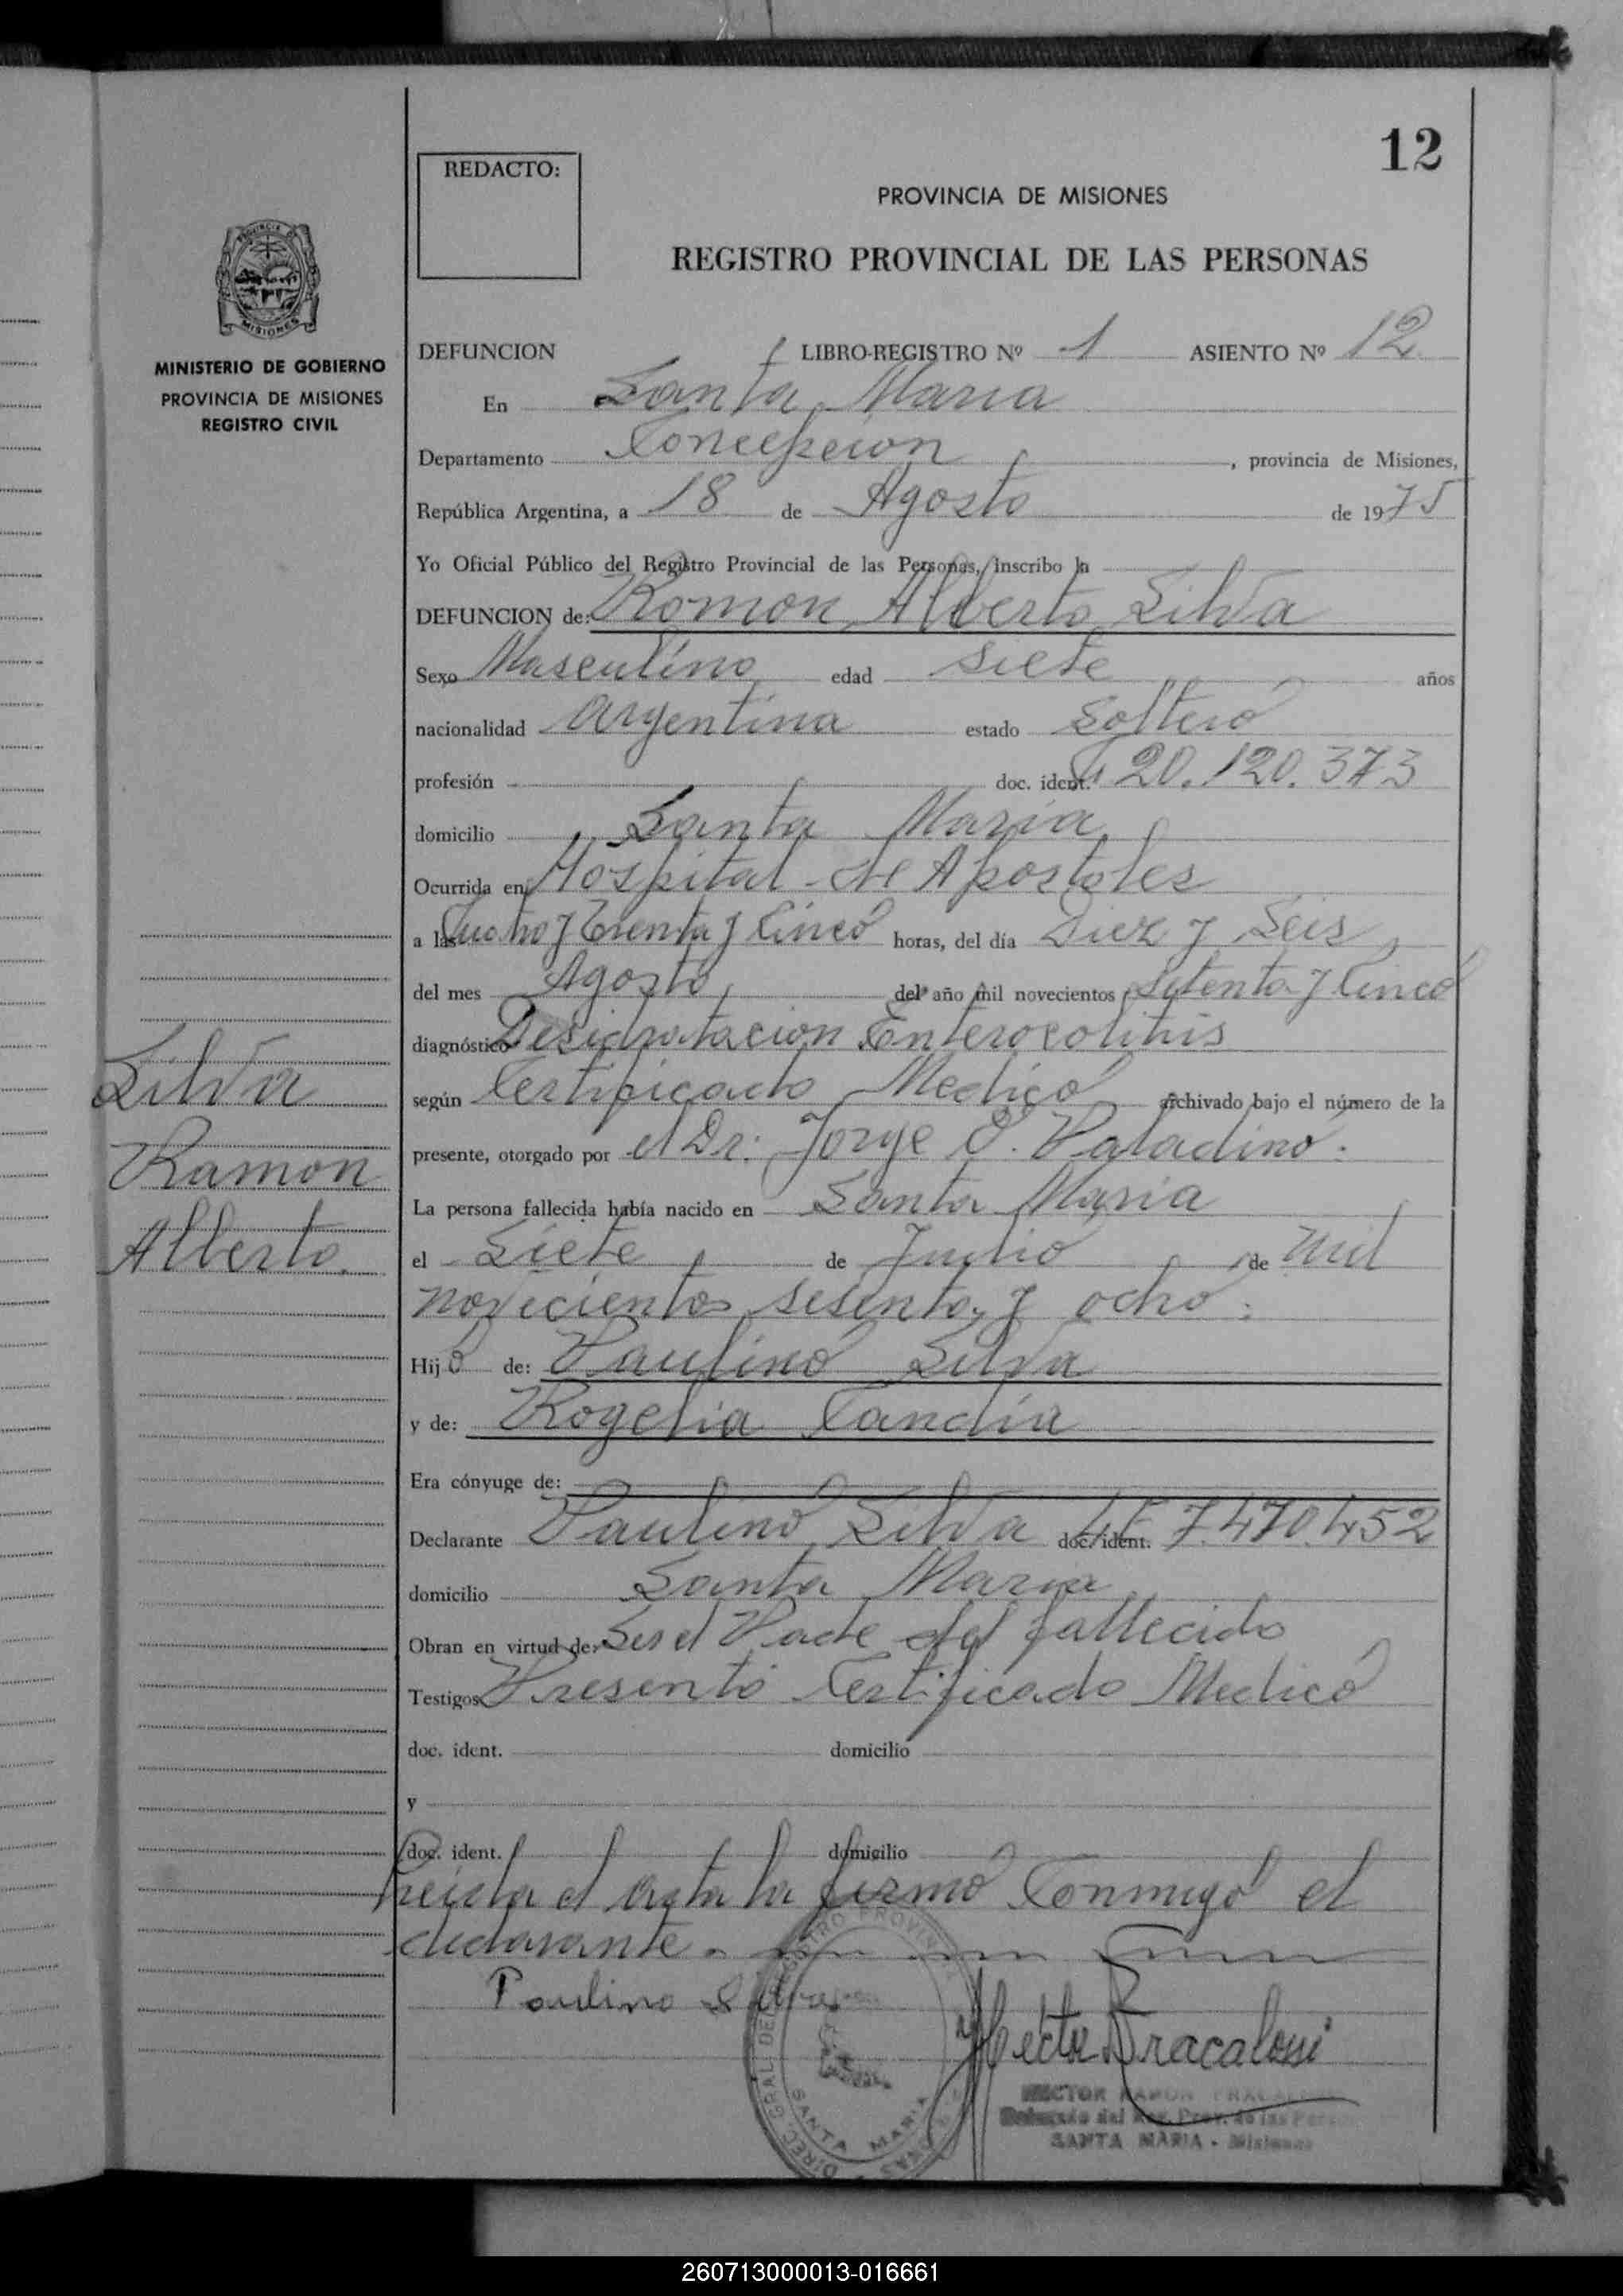 12
REDACTO:
PROVINCIA DE MISIONES
REGISTRO PROVINCIAL DE LAS PERSONAS
MINISTERIO DE GOBIERNO
PROVINCIA DE MISIONES
REGISTRO CIVIL
DEFUNCION LIBRO-REGISTRO Nº 1 ASIENTO Nº 12
En Santa Maria
Departamento Concepcion, provincia de Misiones,
República Argentina, a 18 de Agosto de 1975
Yo Oficial Público del Registro Provincial de las Personas, inscribo la
DEFUNCION de: Ramon Alberto Silva
Sexo Masculino edad siete años
nacionalidad Argentina estado Soltero
profesión doc. ident. 20.120.373
domicilio Santa Maria
Ocurrida en Hospital de Apostoles
a las Cuatro y Treinta y Cinco horas, del día Diez y Seis
del mes Agosto del año mil novecientos Setenta y Cinco
diagnóstico Desidratacion Enterocolitis
según Certificado Medico archivado bajo el número de la
presente, otorgado por el Dr: Jorge O. Paladino.
La persona fallecida había nacido en Santa Maria
el Siete de Junio de mil
novecientos sesenta y ocho.
Hijo de: Paulino Silva
y de: Rogelia Candia
Era cónyuge de:
Declarante Paulino Silva doc. ident. LE 7.470.452
domicilio Santa Maria
Obran en virtud de: Ser el Padre del fallecido
Testigos Presentó Certificado Medico
doc. ident. domicilio
y
doc. ident. domicilio
Leida el acta la firmó Conmigo el
declarante.
Paulino Silva
Hector Fracalossi
HECTOR RAMON
SANTA MARIA - Misiones
DIREC. GRAL. DEL REGISTRO
SANTA MARIA
Silva
Ramon
Alberto.
260713000013-016661